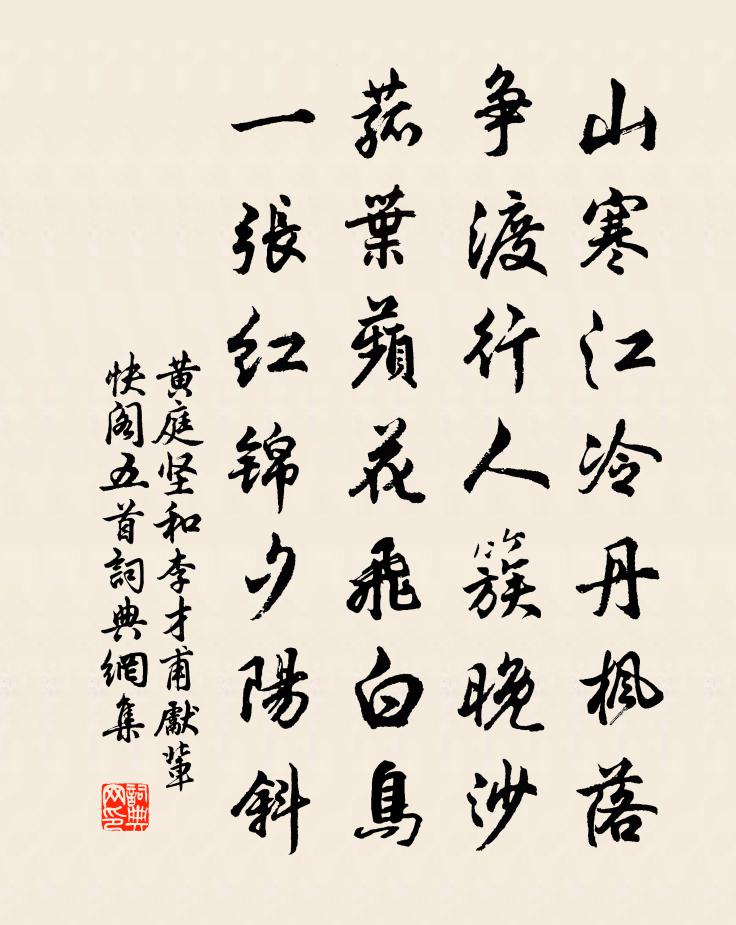 山寒江冷丹楓落
争渡行人簇晚沙
菰葉蘋花飛白鳥
一張紅錦夕陽斜
黄庭坚和李才甫獻軰
快阁五首詞典網集
詞典网印